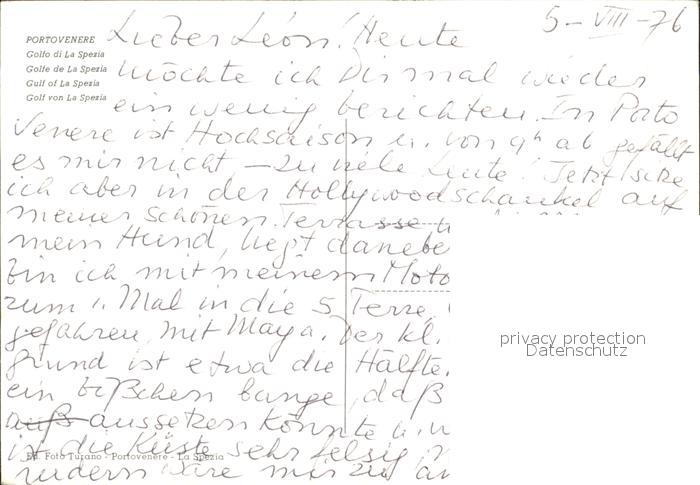 5-VIII-76
PORTOVENERE
Golfo di La Spezia
Golfe de La Spezia
Gulf of La Spezia
Golf von La Spezia
Lieber Léon! Heute
möchte ich Dir mal wieder
ein wenig berichten. In Porto
Venere ist Hochsaison u. von 9h ab gefällt
es mir nicht – zu viele Leute! Jetzt sitze
ich aber in der Hollywoodschaukel auf
meiner schönen Terrasse u
mein Hund, liegt danebe
bin ich mit meinem Moto
zum 1. Mal in die 5 Terre
gefahren, mit Maya. Der kl.
grund ist etwa die Hälfte.
ein bißchen bange, daß
auß aussetzen könnte u.
ist die Küste sehr felsig
rudern wäre mir zu an
Ed. Foto Turano - Portovenere - La Spezia
privacy protection
Datenschutz